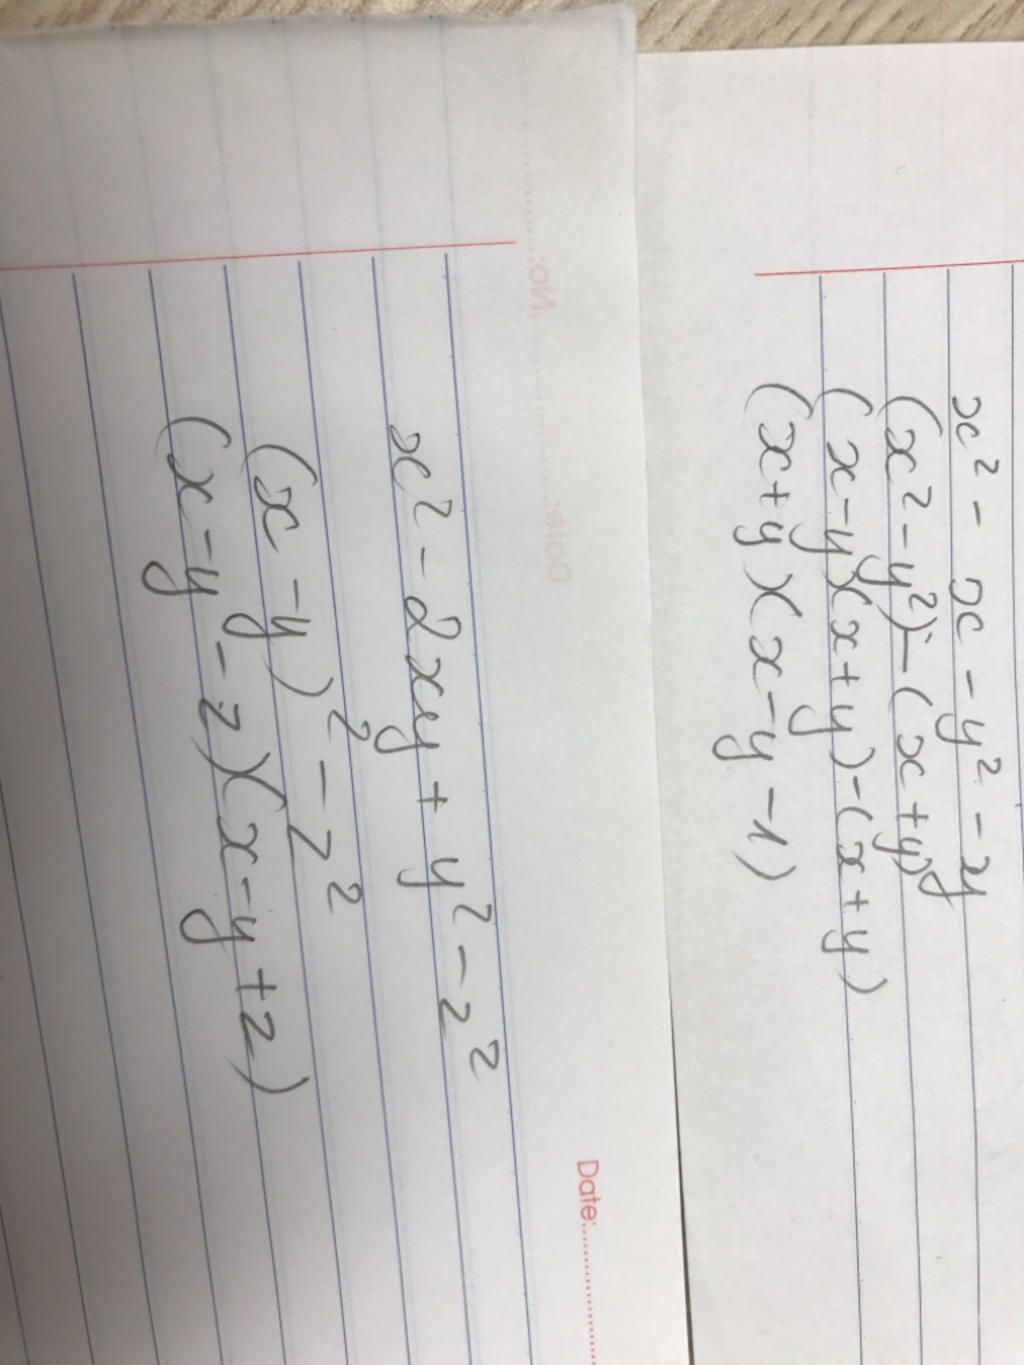 x² - x - y² - y
(x² - y²) - (x + y)
(x - y)(x + y) - (x + y)
(x + y)(x - y - 1)
Date:
No:
Date:
x² - 2xy + y² - z²
(x - y)² - z²
(x - y - z)(x - y + z)